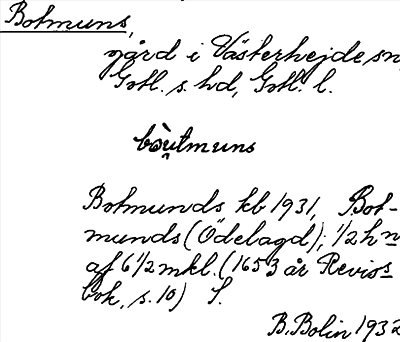 Botmuns,
gård i Västerhejde sn,
Gotl. s. hd, Gotl. l.
bòu̯tmuns
Botmunds kb 1931, Bot-
munds (Ödelagd); 1/2 h n
af 6 1/2 mkl. (1653 år Revis
bok, s. 10) S.
B. Bolin 1932